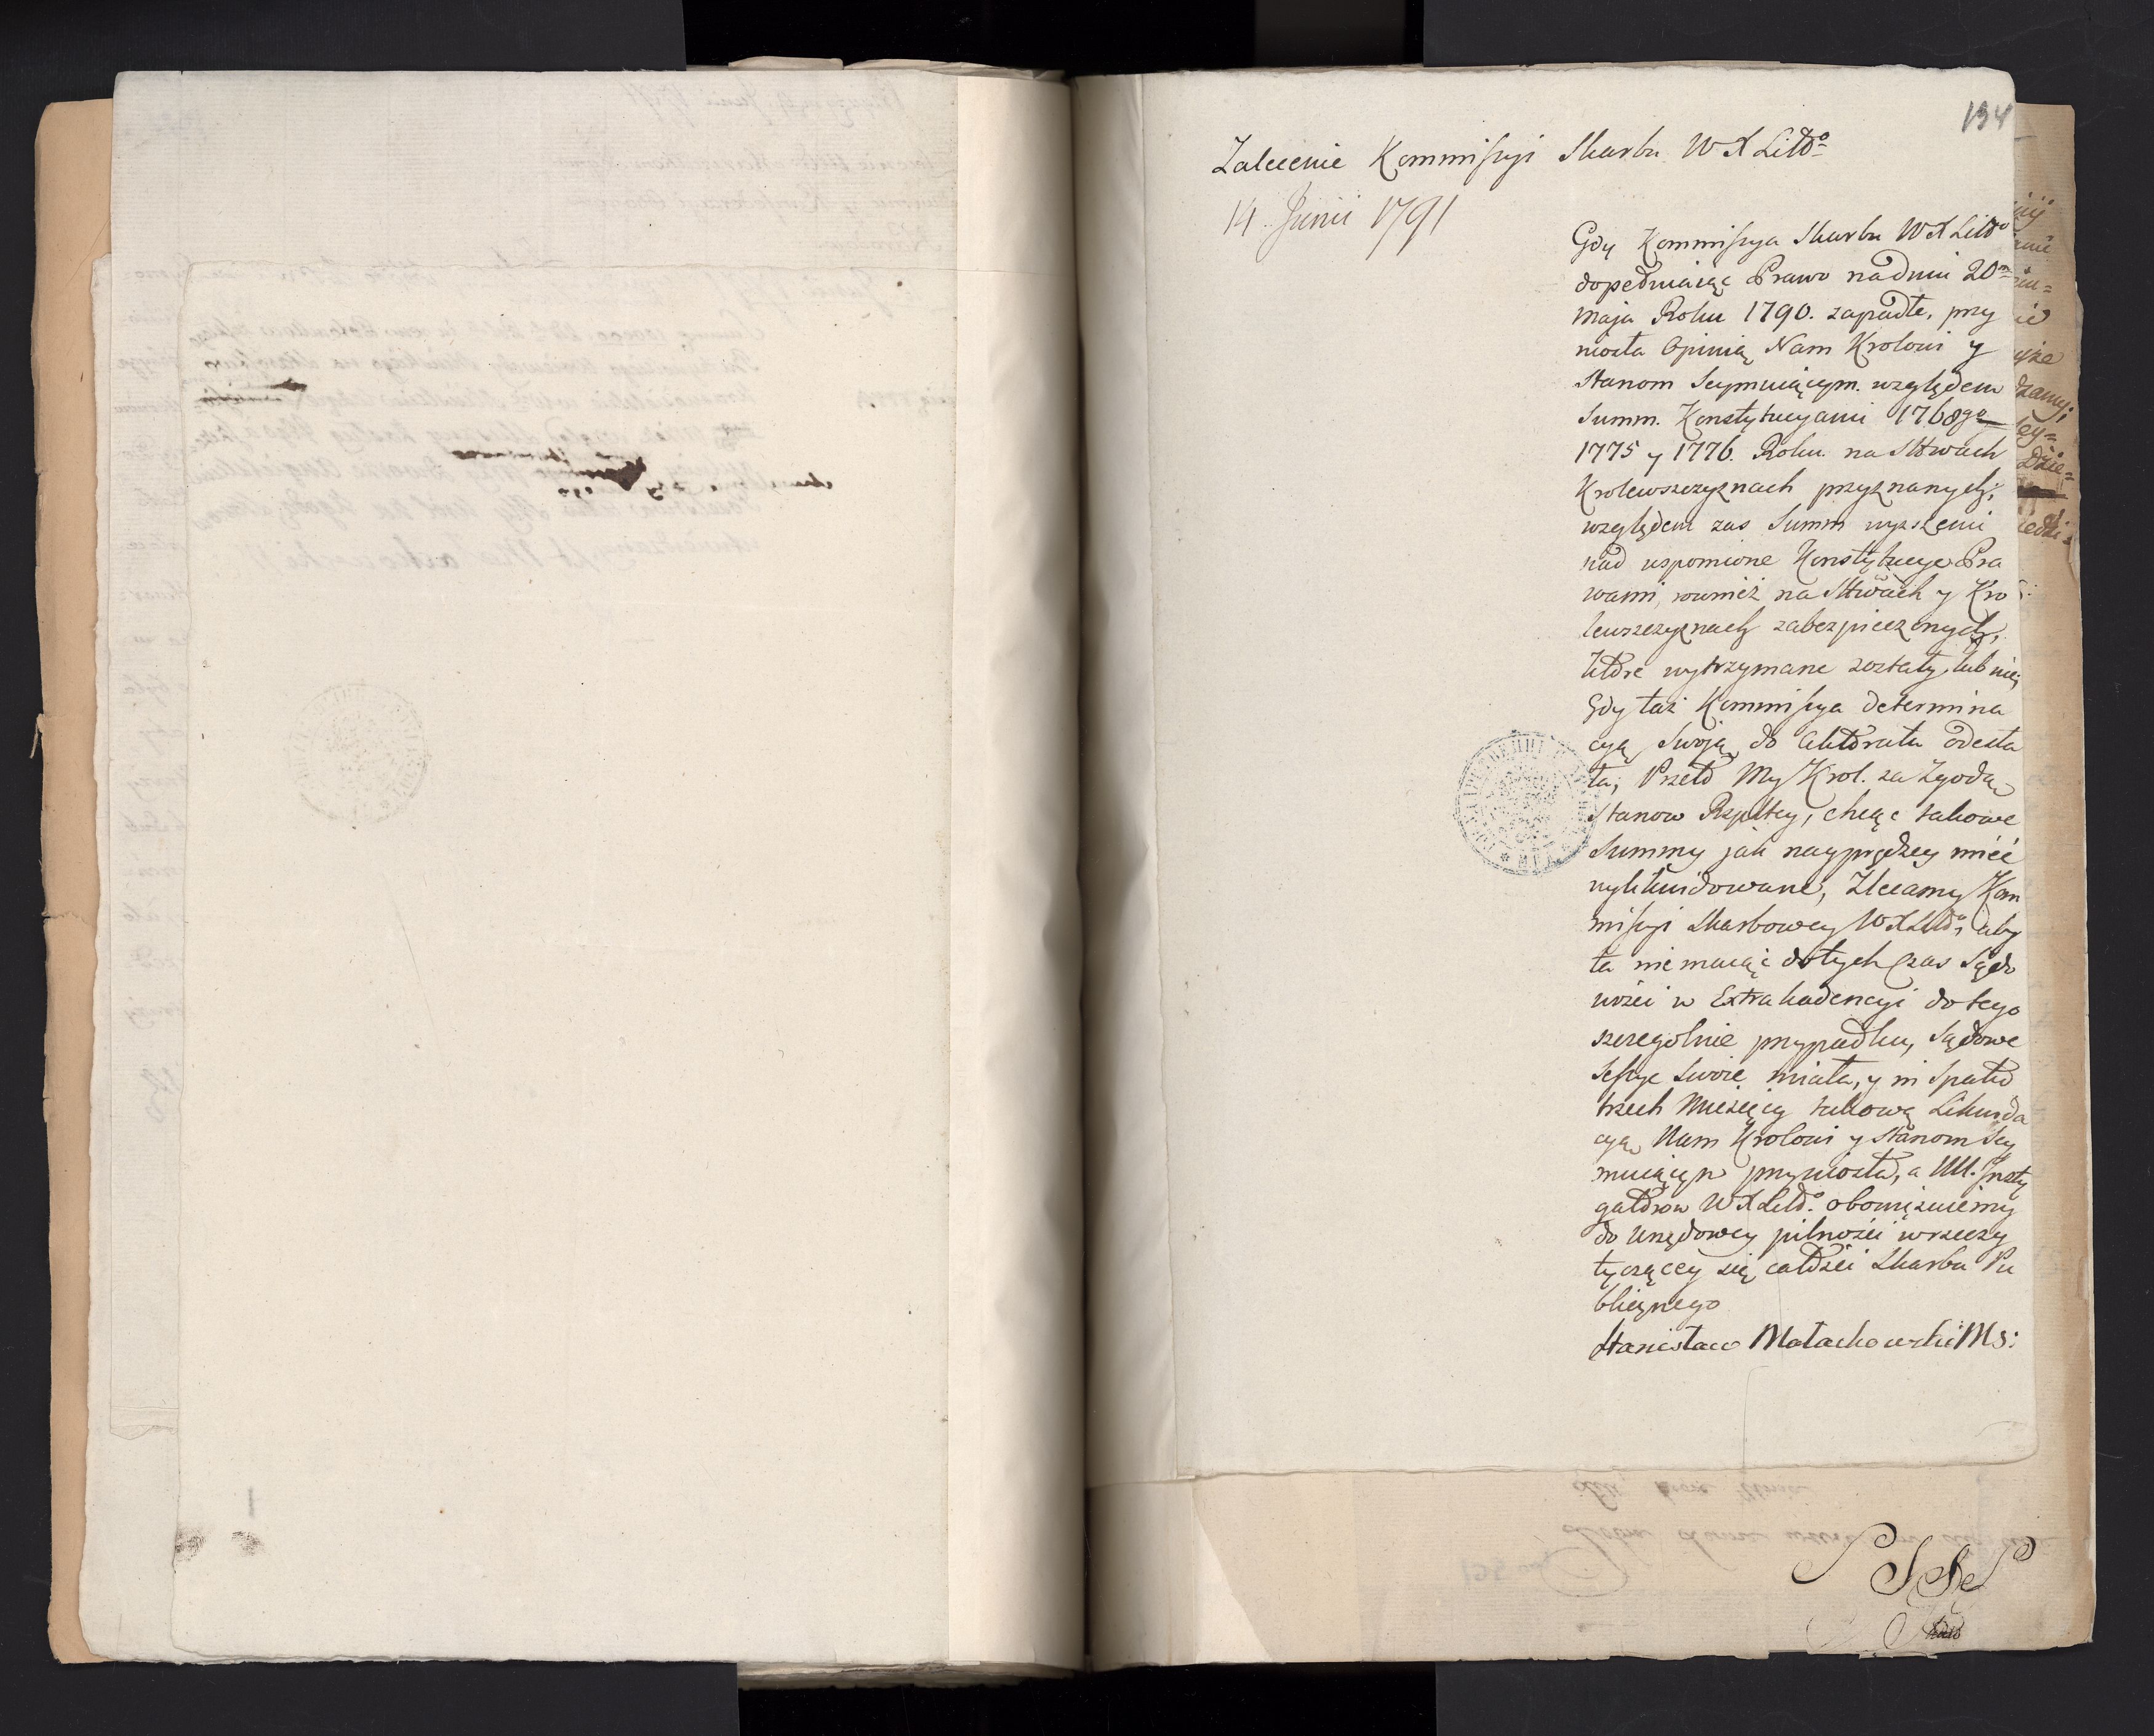 134
Zalecenie Kommissyi Skarbu W X Littо
14 Junii 1791
Gdy Kommissya Skarbu W X Litto
dopełniaiąc Prawo na dniu 20m
maja Roku 1790. zapadłe, przy
niosła Opinią Nam Krolowi y
Stanom Seymuiącym. względem
Summ. Konstytucyami 1768go
1775 y 1776. Roku na Sttwach
Krolewszczyznach przyznanych;
względem zas Summ wyższemi
nad wspomione Konstytucye Pra
wami, rownież na Sttwach y Kro
lewszczyznach zabezpieczonych,
które wytrzymane zostały, lub nie;
Gdy taż Kommissya determina
cyą swoją do Aktoratu odesła
ła; Przeto My Krol. za Zgodą
Stanow Rzpltey, chcąc takowe
Summy jak nayprędzey mieć
wylikwidowane, Zlecamy Kom
missyi Skarbowey W X Litto, aby
ta nie maiąc dotych czas Sądo
wości w Extrakadencyi do tego
szczegolnie przypadku, Sądowe
Sessye swoie miała, y in Spatio
trzech Miesięcy takową Likwida
cyą Nam Krolowi y Stanom Sey
muiącym przyniosła, a UU. Insty
gatorow W X Litto. obowiązuiemy
do Urzędowey pilności w rzeczy
tyczącey się całości Skarbu Pu
blicznego
Stanisław Małachowski MS: